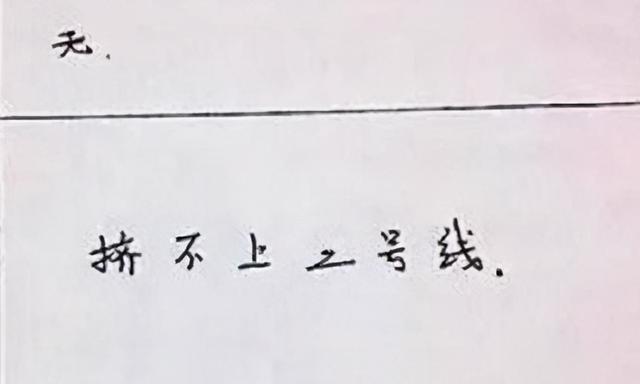 无.
挤不上2号线.